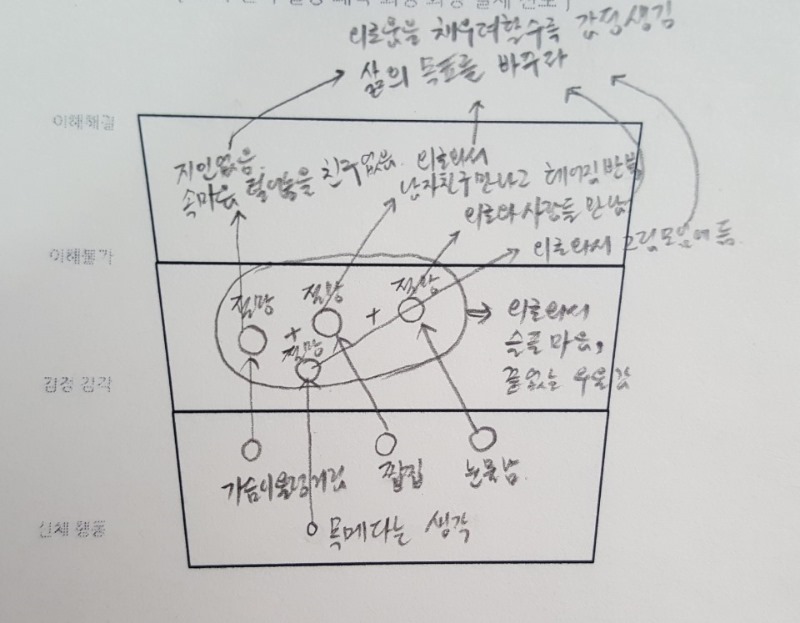 외로움을 채우려할수록 감정생김
삶의 목표를 바꾸라
이해해결
지인없음.
속마음 털어놓을 친구없음.
외로와서
남자친구만나고 헤어짐반복
외로와 사람들 만남
외로와서 그림모임에 듬.
이해불가
절망
절망
절망
+
+
절망
외로와서
슬픈 마음,
끝없는 우울감
감정 감각
가슴이울렁거림
찝찝
눈물남.
신체 행동
목메다는 생각